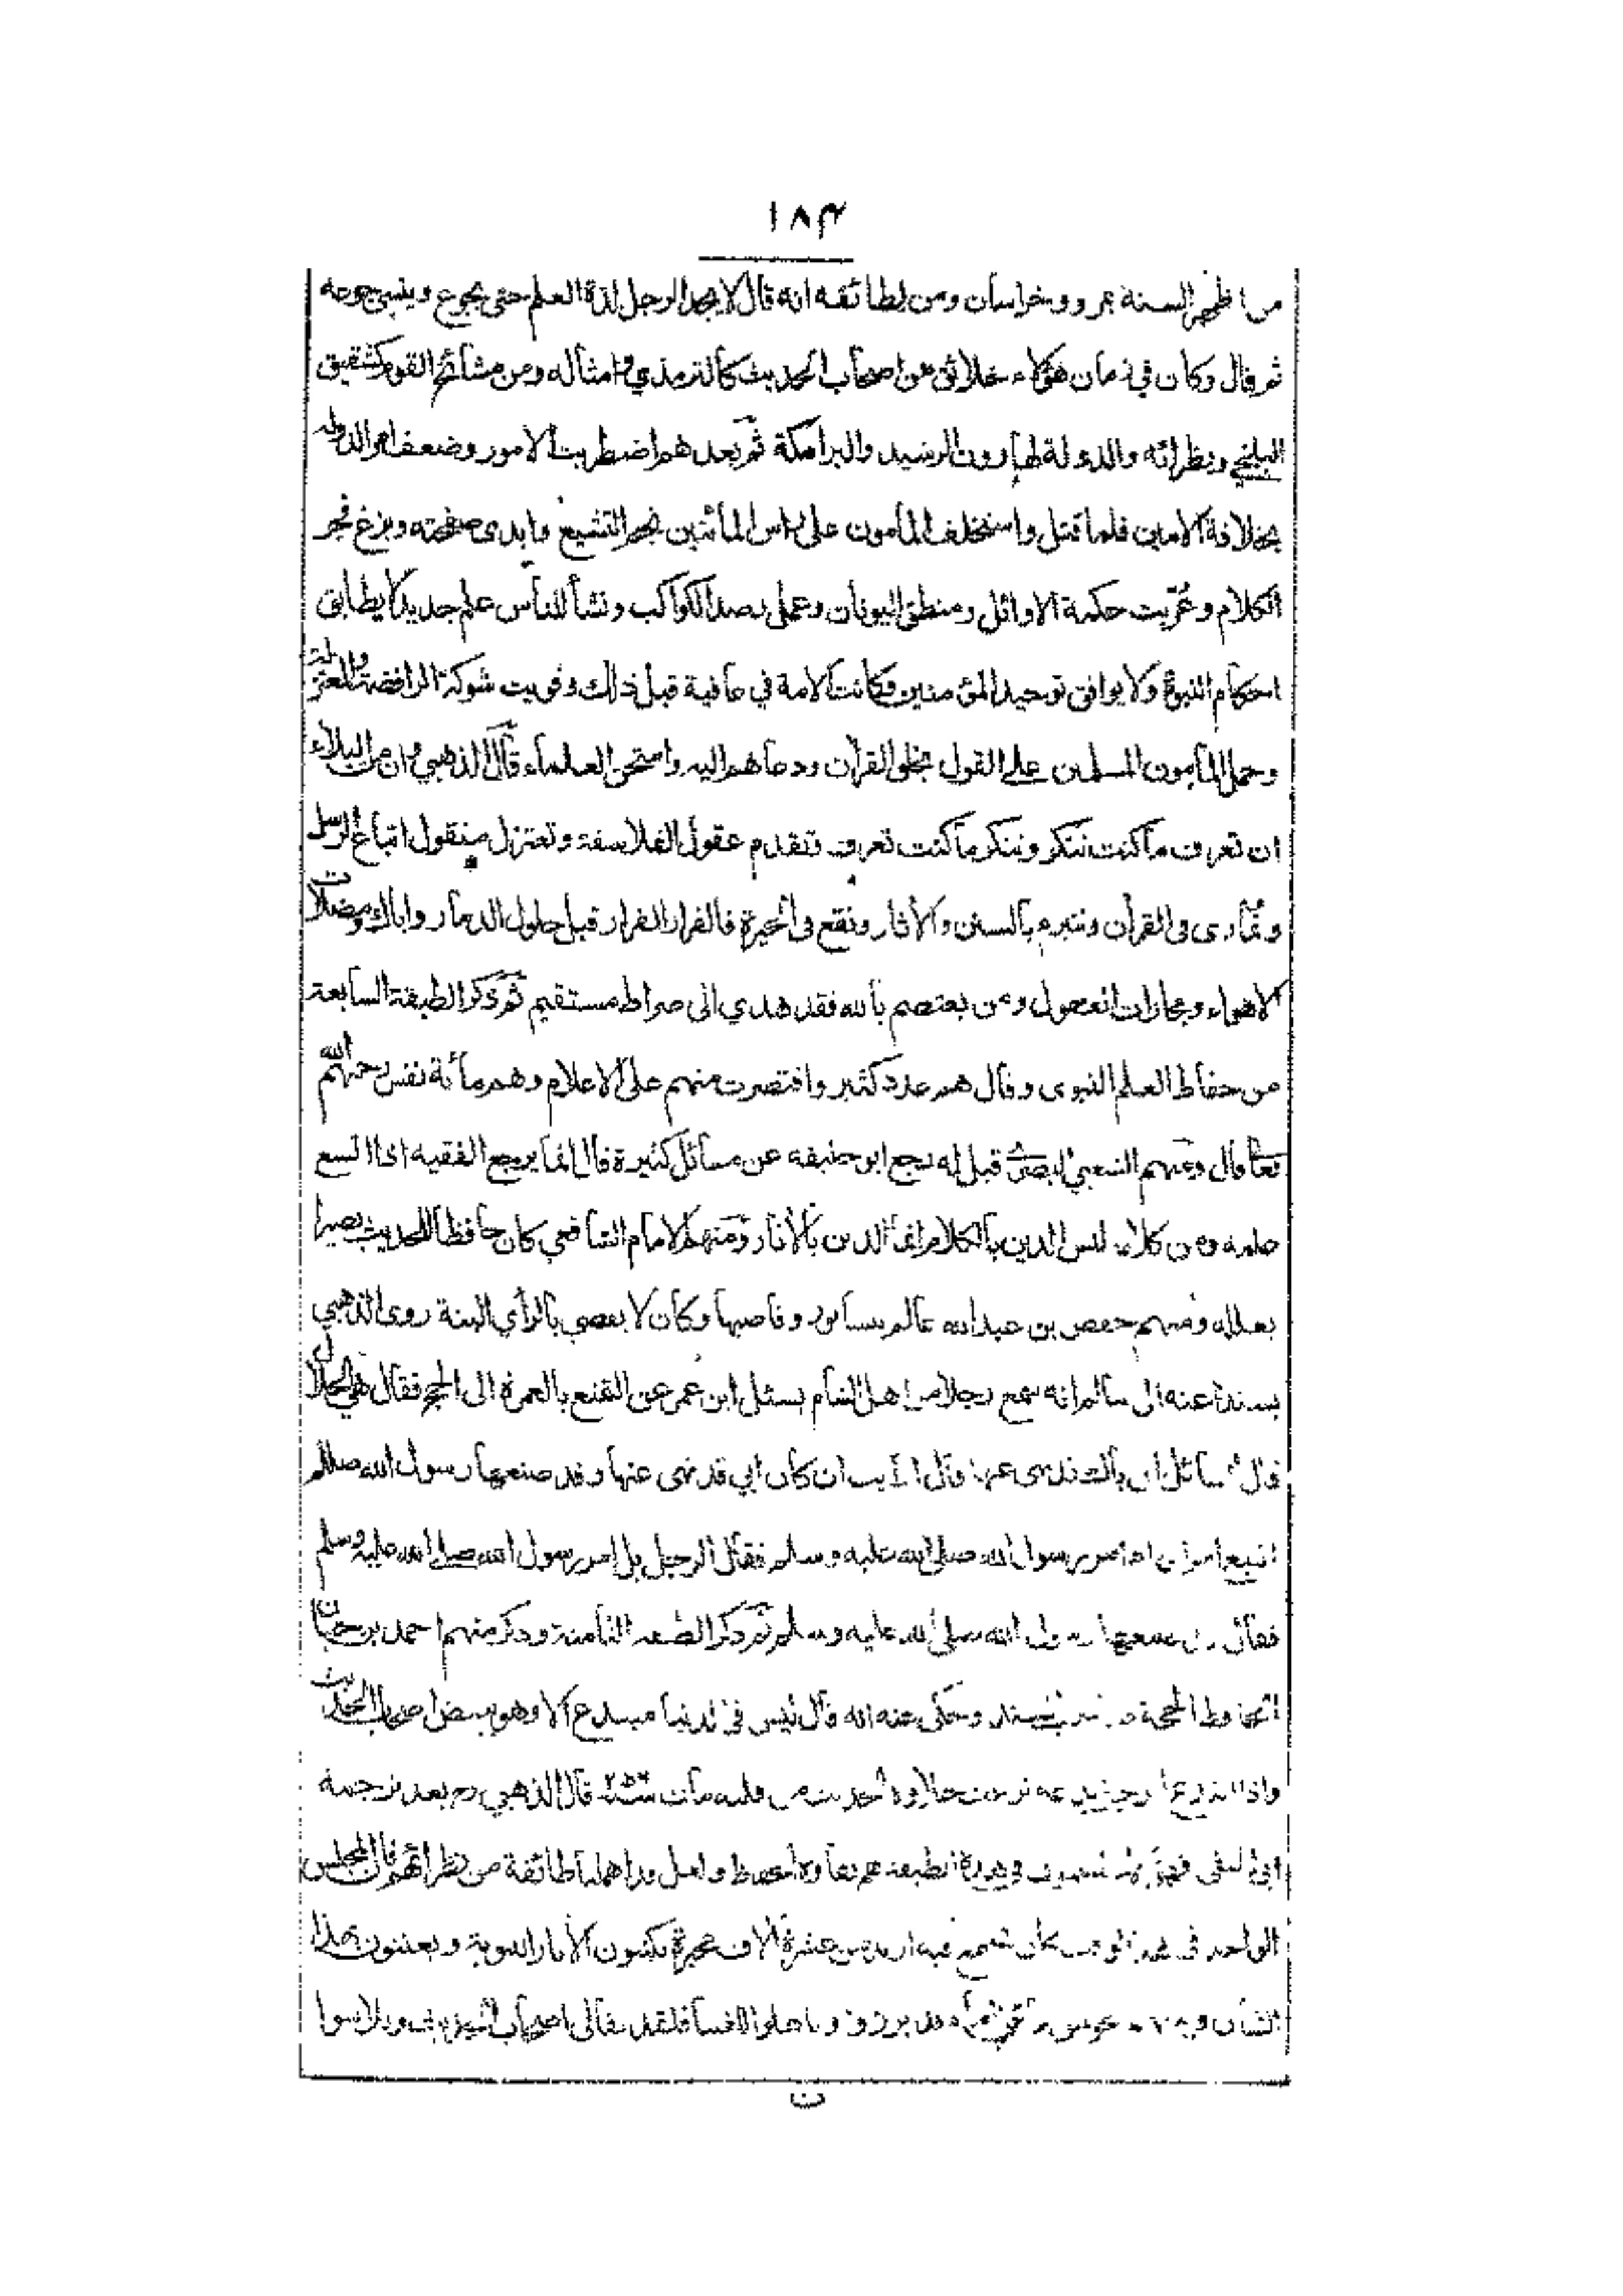 ١٨٣
من اظهر السنة بمرو وخراسان ومن لطائفه انه قال لا يجد الرجل لذة العلم حتى يجوع وينسى جوعه
ثم قال وكان في زمان هؤلاء خلائق من اصحاب الحديث كالترمذي وامثاله ومن مشائخ القوم كشقيق
البلخي ونظرائه والدولة لهارون الرشيد والبرامكة ثم بعدهم اضطربت الامور وضعف امر الدولة
بخلافة الامين فلما قتل واستخلف المأمون على رأس المأتين نجم التشيع وابدى صفحته وبزغ فجر
الكلام وعُرّبت حكمة الاوائل ومنطق اليونان وعمل رصد الكواكب ونشأ للناس علم جديد لا يطابق
احكام النبوة ولا يوافق توحيد المؤمنين وكانت الامة في عافية قبل ذلك وقويت شوكة الرافضة والمعتزلة
وحمل المأمون المسلمين على القول بخلق القرآن ودعاهم اليه وامتحن العلماء قال الذهبي وان من البلاء
ان تعرف ما كنت تنكر وتنكر ما كنت تعرف وتقدم عقول الفلاسفة وتعتزل منقول اتباع الرسل
وتمارى في القرآن وتتبرم بالسنن والاثار وتقع في الحيرة فالفرار الفرار قبل حلول الدمار واياك ومضلات
الاهواء ومجازات العقول ومن يعتصم بالله فقد هدي الى صراط مستقيم ثم ذكر الطبقة السابعة
من حفاظ العلم النبوى وقال هم عدد كثير واقتصرت منهم على الاعلام وهم مأئة نفس رحمهم الله
تعا قال ومنهم الشعبي البصرى قيل له رجع ابو حنيفه عن مسائل كثيرة قال انما يرجع الفقيه اذا اتسع
علمه ومن كلامه ليس الدين بالكلام انما الدين بالاثار ومنهم الامام الشافعي كان حافظا للحديث بصيرا
بعلله ومنهم حفص بن عبد الله عالم نيسابور وقاضيها وكان لا يقضي بالرأي البتة روى الذهبي
بسنده عنه الى سالم انه سمع رجلا من اهل الشام يسئل ابن عمر عن التمتع بالعمرة الى الحج فقال هي الحلال
قال السائل ان باك قد نهى عنها قال ارأيت ان كان ابي قد نهى عنها وقد صنعها رسول الله صللم
اتتبع امر ابي ام امر رسول الله صلى الله عليه وسلم فقال الرجل بل امر رسول الله صلى الله عليه وسلم
فقال قد صنعها رسول الله صلى الله عليه وسلم ثم ذكر الطبقة الثامنة وذكر منهم احمد بن سنان
الحافظ الحجة صاحب المسند وحكى عنه انه قال ليس في الدنيا مبتدع الا وهو يبغض اصحاب الحديث
واذا ابتدع الرجل بدعة نزعت حلاوة الحديث من قلبه مات سنة قال الذهبي رح بعد ترجمة
فهؤلاء المسمون في هذه الطبقة هم نقاوة الحفاظ ولعل قد اهملنا طائفة من نظرائهم فان المجلس
الواحد في هذا الوقت كان يجتمع فيه ازيد من عشرة آلاف محبرة يكتبون الآثار النبوية ويعتنون بهذا
الشأن قد برزوا وتاهلوا للافتا فلقد تفانى اصحاب الحديث وتلاشوا
ن